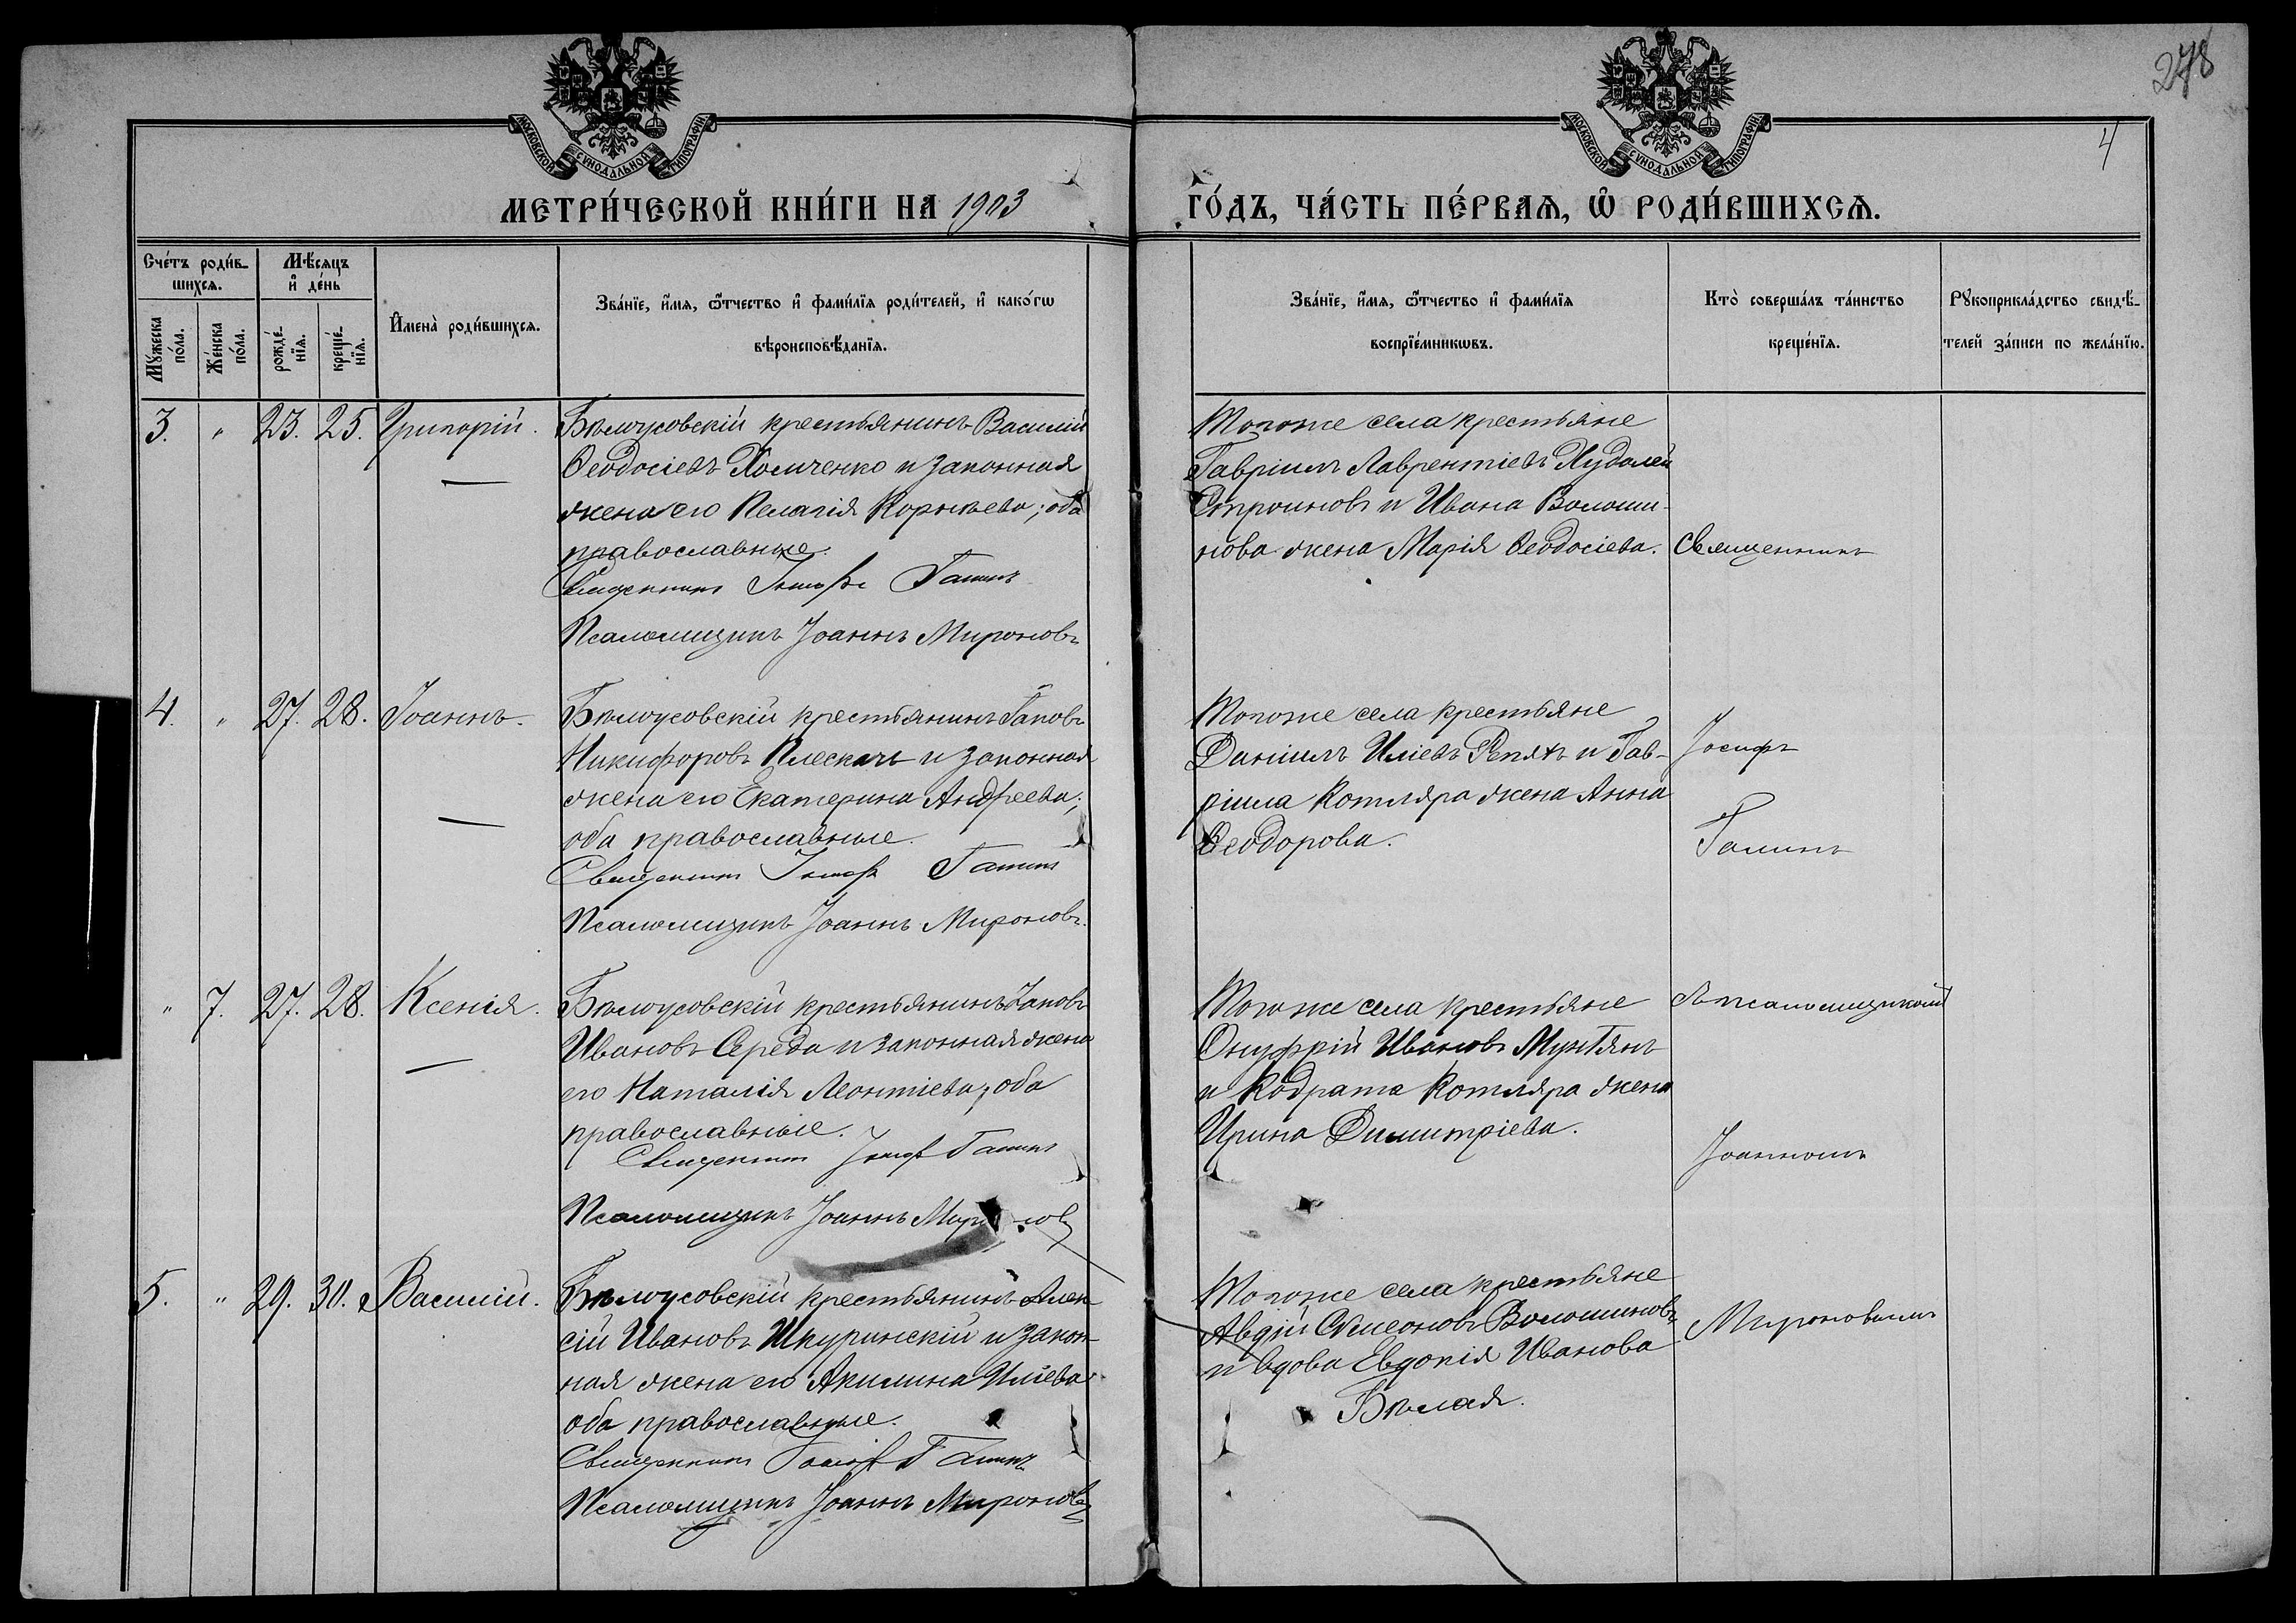 278
4
МОСКОВСКОЙ СѴНОДАЛЬНОЙ ТИПОГРАФІИ
МОСКОВСКОЙ СѴНОДАЛЬНОЙ ТИПОГРАФІИ
МЕТРИ́ЧЕСКОЙ КНИ́ГИ НА 1903
ГО́ДЪ, ЧА́СТЬ ПЕ́РВАѦ, Ѡ҆ РОДИ́ВШИХСѦ.
Сче́тъ роди́в-
шихсѧ.
Мꙋ́жеска
по́ла.
Же́нска
по́ла.
Мѣ́сѧцъ
и҆ де́нь
рожде́-
нїѧ.
креще́-
нїѧ.
И҆мена̀ роди́вшихсѧ.
Зва́нїе, и҆́мѧ, ѻ҆́тчество и҆ фами́лїѧ роди́телей, и҆ како́гѡ
вѣроисповѣ́данїѧ.
Зва́нїе, и҆́мѧ, ѻ҆́тчество и҆ фами́лїѧ
воспрїе́мникѡвъ.
Кто̀ соверша́лъ та́инство
креще́нїѧ.
Рꙋкоприкла́дство свидѣ́-
телей за́писи по жела́нїю.
3. " 23. 25. Григорій.
Бѣлоусовскій крестьянинъ Василій
Ѳеодосіевъ Хомченко и законная
жена его Пелагія Корнѣева; оба
православные.
Священникъ Іосифъ Галинъ
Псаломщикъ Іоаннъ Мироновъ
Того же села крестьяне
Гавріилъ Лаврентіевъ Худолей
и Ивана Волоши-
нова жена Марія Ѳеодосіева.
Священникъ
4. " 27. 28. Іоаннъ.
Бѣлоусовскій крестьянинъ Іаковъ
Никифоровъ Плескачъ и законная
жена его Екатерина Андреева;
оба православные.
Священникъ Іосифъ Галинъ
Псаломщикъ Іоаннъ Мироновъ.
Того же села крестьяне
Даніилъ Иліевъ Репяхъ и Гав-
ріила Котляра жена Анна
Ѳеодорова.
Іосифъ
Галинъ
" 7. 27. 28. Ксенія.
Бѣлоусовскій крестьянинъ Іаковъ
Ивановъ Середа и законная жена
его Наталія Леонтіева; оба
православные.
Священникъ Іосифъ Галинъ
Псаломщикъ Іоаннъ Мироновъ
Того же села крестьяне
Онуфрій Ивановъ Мунтянъ
и Кодрата Котляра жена
Ирина Димитріева.
съ псаломщикомъ
Іоанномъ
5. " 29. 30. Василій.
Бѣлоусовскій крестьянинъ Алек-
сій Ивановъ Шкуринскій и закон-
ная жена его Акилина Иліева
оба православные.
Священникъ Іосифъ Галинъ
Псаломщикъ Іоаннъ Мироновъ
Того же села крестьяне
Авдій Симеоновъ Волошиновъ
и вдова Евдокія Иванова
Бѣлая.
Мироновымъ